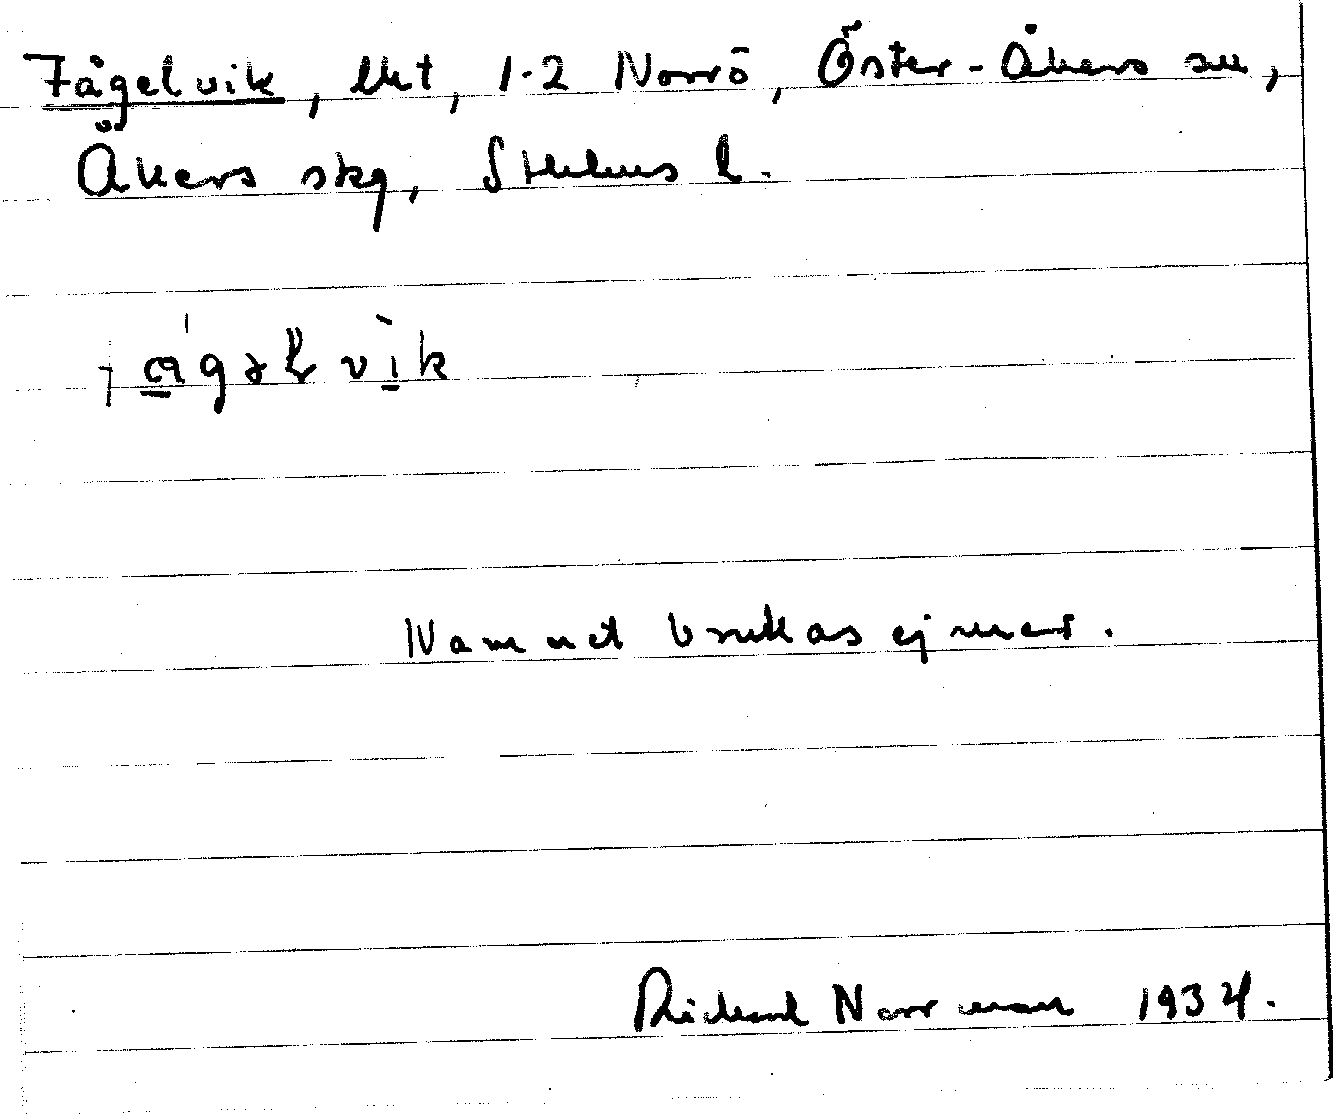 Fågelvik, lht, 1-2 Norrö, Öster-Åkers sn,
Åkers skg, Sthlms l.
Namnet brukas ej mer.
Richard Norrman 1934.